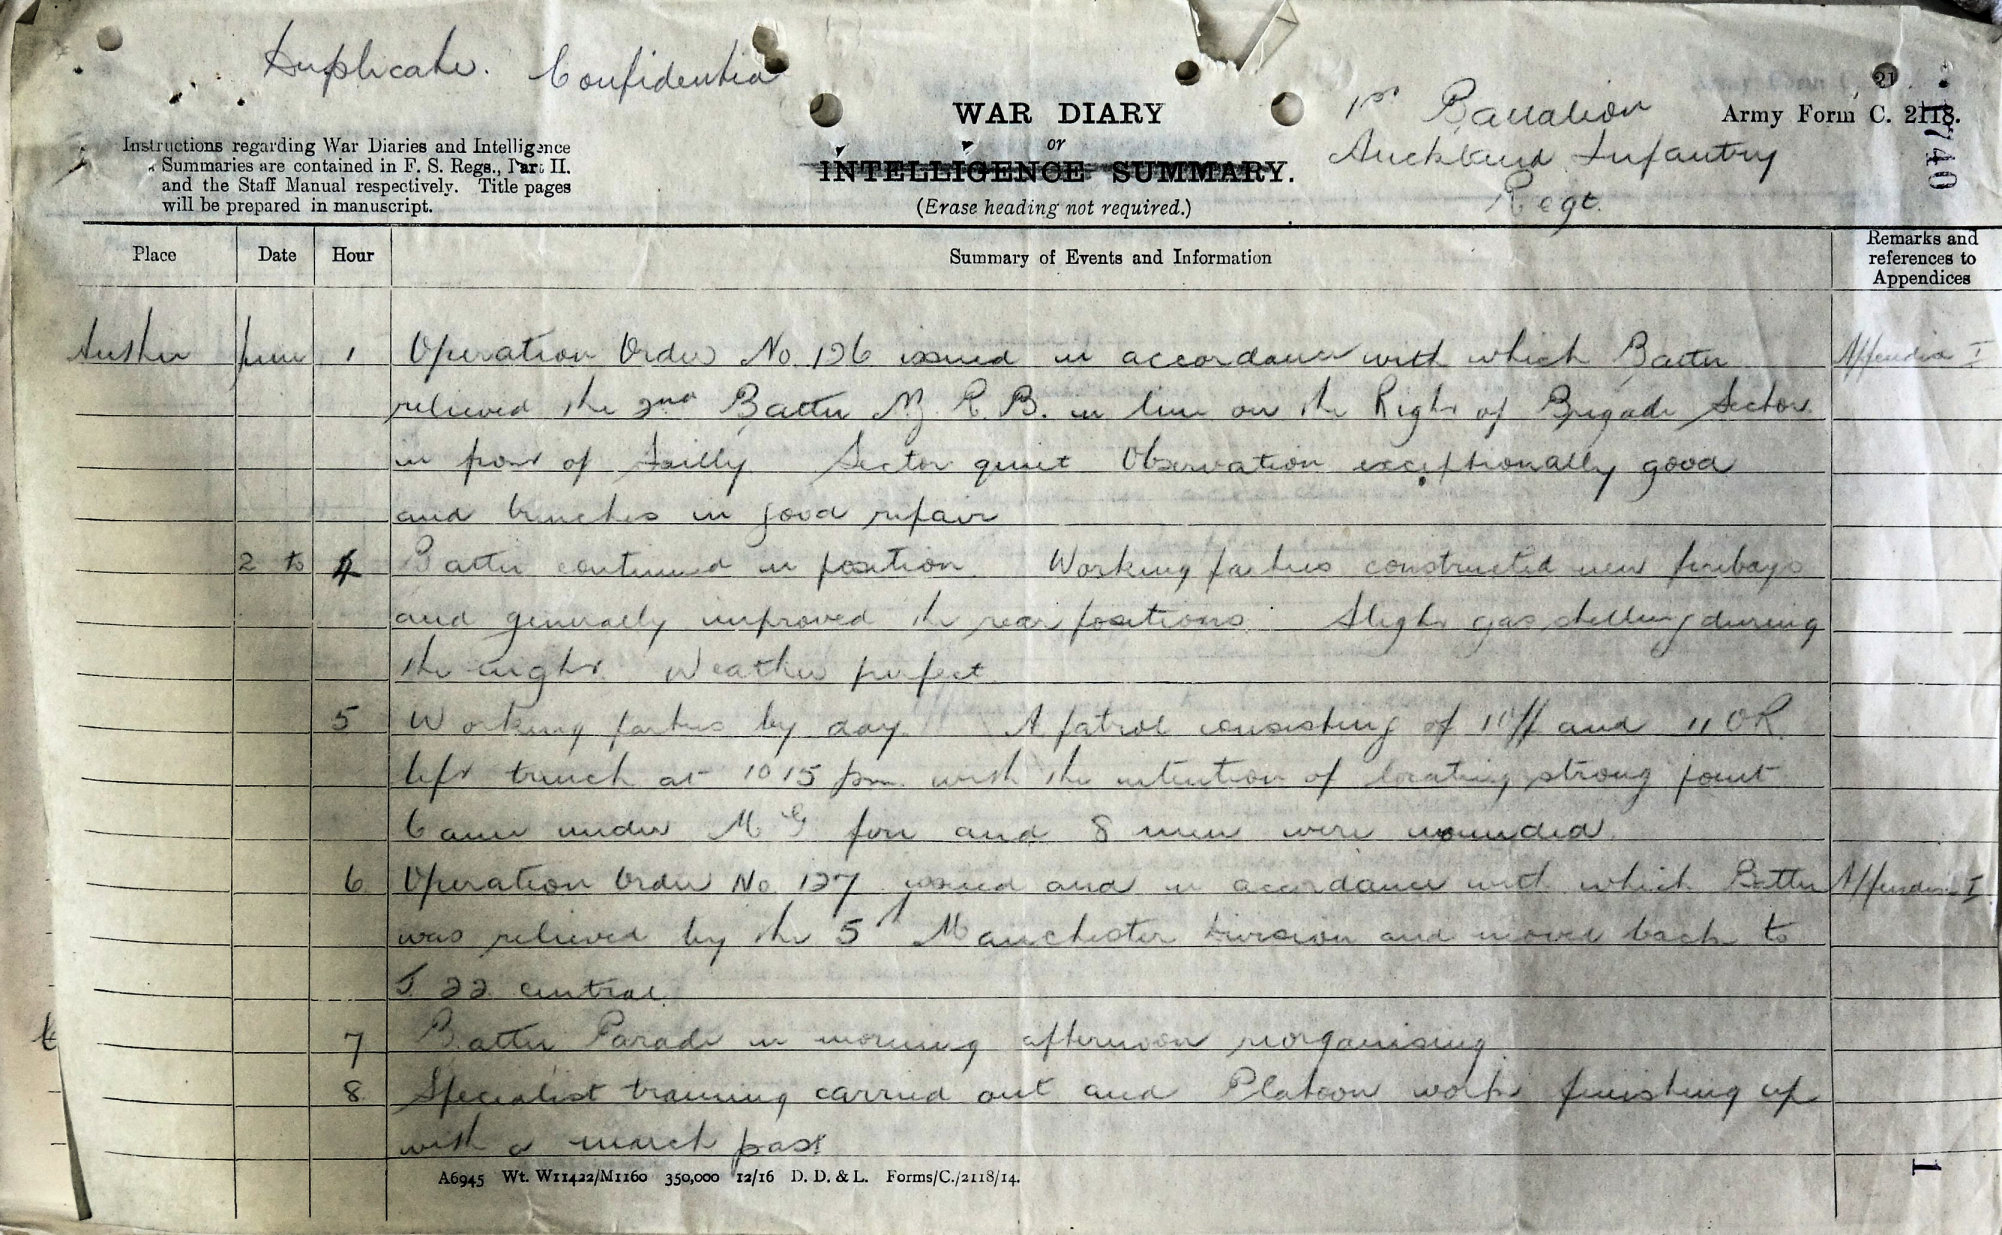 Duplicate. Confidential
21
WAR DIARY
or
INTELLIGENCE SUMMARY.
(Erase heading not required.)
Instructions regarding War Diaries and Intelligence
Summaries are contained in F. S. Regs., Part II.
and the Staff Manual respectively. Title pages
will be prepared in manuscript.
1st Battalion
Auckland Infantry
Regt.
Army Form C. 2118.
1740
Place Date Hour Summary of Events and Information Remarks and references to Appendices
June 1 Operation Order No 126 issued in accordance with which Battn Appendix I
relieved the 2nd Battn N Z R. B. in line on the Right of Brigade Sector
in front of Sailly Sector quiet Observation exceptionally good
and trenches in good repair
2 to 4 Battn continued in position Working parties constructed new firebays
and generally improved the rear positions Slight gas shelling during
the night. Weather perfect
5 Working parties by day. A patrol consisting of 1 Off and 11 OR.
left trench at 10 15 pm with the intention of locating strong point
Came under M G fire and 8 men were wounded
6 Operation Order No 127 issued and in accordance with which Battn Appendix I
was relieved by the 5 Manchester Division and moved back to
J 22 central.
7 Battn Parade in morning afternoon reorganising.
8 Specialist training carried out and Platoon work finishing up
with a march past
A6945 Wt. W11422/M1160 350,000 12/16 D. D. & L. Forms/C./2118/14.
1